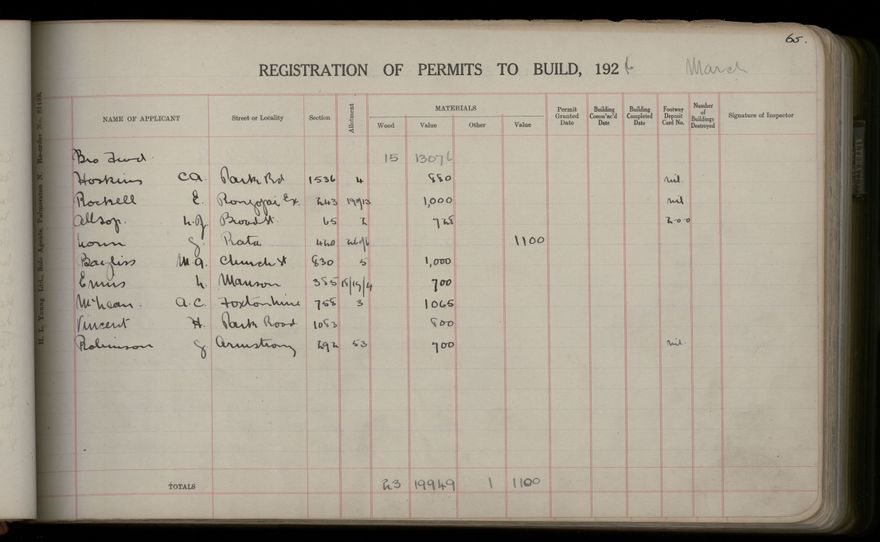 65.
REGISTRATION OF PERMITS TO BUILD, 1926 March
NAME OF APPLICANT Street or Locality Section Allotment MATERIALS Wood Value Other Value Permit Granted Date Building Comm'nc'd Date Building Completed Date Footway Deposit Card No. Number of Buildings Destroyed Signature of Inspector
Bro Fwd 15 13076
Hoskins CA. Park Rd 1536 4 880 nil
Rockell E. Rongopai Ex. 243 1,000 nil
Allsop. Broad St. 65 2 728 2-0-0
J. Rata 440 1100
Bayliss M.A. Church St 830 5 1,000
Ennis L. Manson 355 18/19/4 700
McLean. A.C. Foxton line 758 3 1065
Vincent H. Park Road 1083 800
Robinson J. Armstrong 292 53 700 nil
TOTALS 23 19949 1 1100
H. L. Young Ltd., Sole Agents, Palmerston N. Re-order No.